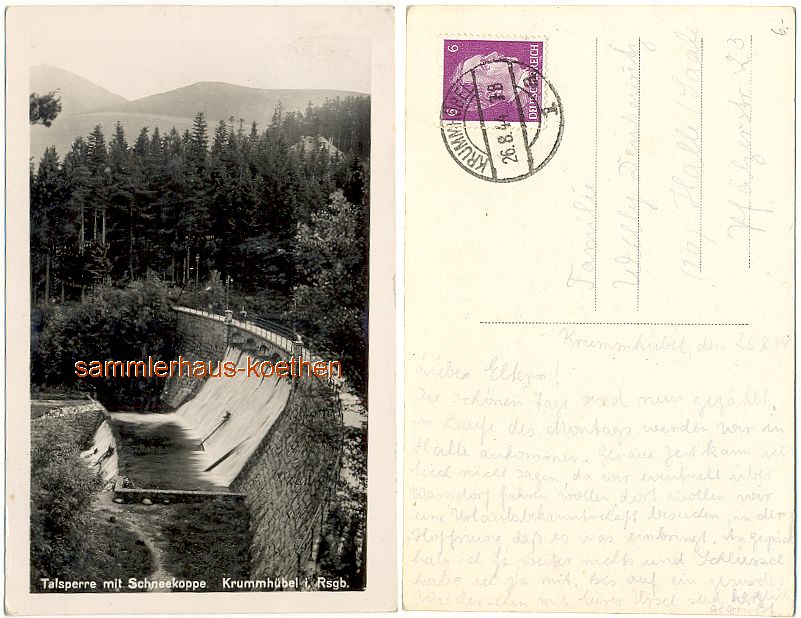 sammlerhaus-koethen
Talsperre mit Schneekoppe. Krummhübel i. Rsgb.
6.-
6
6
DEUTSCHES REICH
KRUMMHÜBEL
26.8.44
Familie
Willy
Halle/Saale
23
Krummhübel, den 25.8.
Liebe Eltern!
Die schönen Tage sind nun gezählt,
im Laufe des Montags werden wir in
Halle ankommen. Genaue Zeit kann ich
Euch nicht sagen, da wir eventuell über
fahren wollen dort wollen wir
eine Urlaubsbekanntschaft besuchen, in der
Hoffnung daß es was einbringt. An gepäck
habe ich ja weiter nichts und Schlüssel
habe ich ja mit. Bis auf ein gesundes
Wiedersehen mit Eurer Ursel seid herzlich
gegrüßt